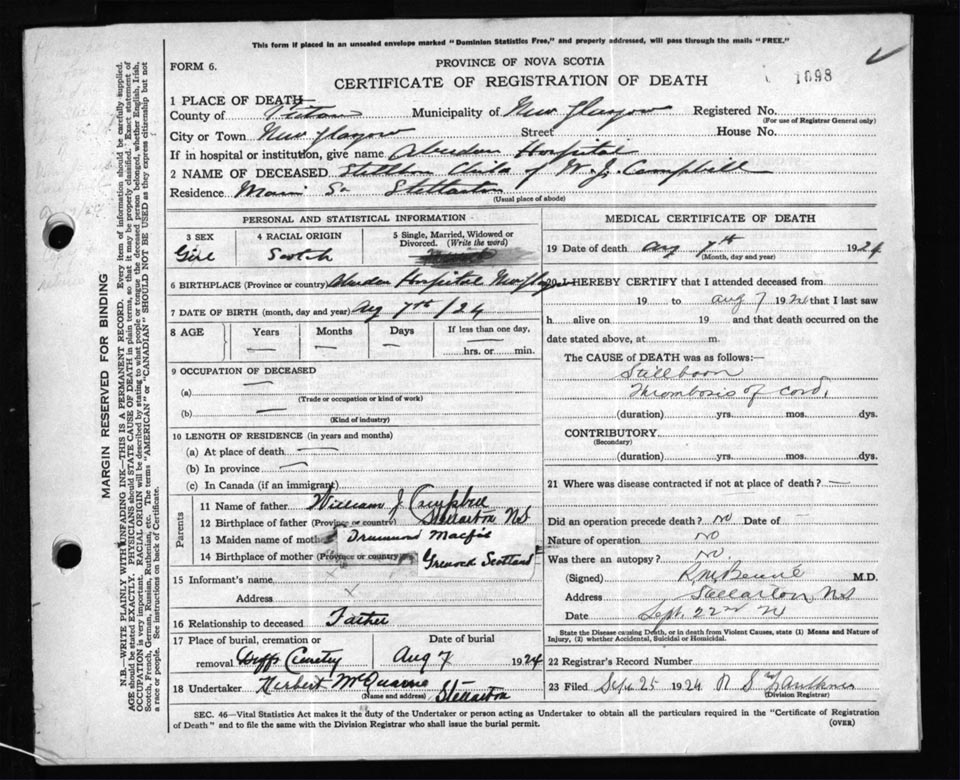 This form if placed in an unsealed envelope marked "Dominion Statistics Free," and properly addressed, will pass through the mails "FREE."
FORM 6.
PROVINCE OF NOVA SCOTIA
CERTIFICATE OF REGISTRATION OF DEATH
1098
1 PLACE OF DEATH—
County of Pictou Municipality of New Glasgow Registered No.
(For use of Registrar General only)
City or Town New Glasgow Street House No.
If in hospital or institution, give name Aberdeen Hospital
2 NAME OF DECEASED Stillborn Child of W. J. Campbell
Residence Main St Stellarton
(Usual place of abode)
PERSONAL AND STATISTICAL INFORMATION
3 SEX
Girl
4 RACIAL ORIGIN
Scotch
5 Single, Married, Widowed or Divorced. (Write the word)
6 BIRTHPLACE (Province or country) Aberdeen Hospital
7 DATE OF BIRTH (month, day and year) Aug 7th /24
8 AGE Years Months Days If less than one day,
— — — hrs. or min.
9 OCCUPATION OF DECEASED
—
(a)
(Trade or occupation or kind of work)
(b) —
(Kind of industry)
10 LENGTH OF RESIDENCE (in years and months)
(a) At place of death —
(b) In province —
(c) In Canada (if an immigrant)
Parents
11 Name of father William J Campbell
12 Birthplace of father (Province or country) Stellarton NS
13 Maiden name of mother Drummond Macfie
14 Birthplace of mother (Province or country) Grenock Scotland
15 Informant's name x
Address x
16 Relationship to deceased Father
17 Place of burial, cremation or Date of burial
removal Cemetry Aug 7 1924
18 Undertaker Herbert McQuarrie Stellarton
(Name and address)
MEDICAL CERTIFICATE OF DEATH
19 Date of death Aug 7th 1924
(Month, day and year)
20 I HEREBY CERTIFY that I attended deceased from
19 to Aug 7 1924 that I last saw
h alive on 19 and that death occurred on the
date stated above, at m.
The CAUSE OF DEATH was as follows:—
Stillborn
Thrombosis of cord.
(duration) yrs. mos. dys.
CONTRIBUTORY
(Secondary)
(duration) yrs. mos. dys.
21 Where was disease contracted if not at place of death? —
Did an operation precede death? NO Date of —
Nature of operation NO
Was there an autopsy? NO.
(Signed) M.D.
Address Stellarton NS
Date Sept. 22nd
State the Disease causing Death, or in death from Violent Causes, state (1) Means and Nature of Injury, (2) whether Accidental, Suicidal or Homicidal.
22 Registrar's Record Number
23 Filed Sept 25 1924 R S Faulkner
(Division Registrar)
SEC. 46—Vital Statistics Act makes it the duty of the Undertaker or person acting as Undertaker to obtain all the particulars required in the "Certificate of Registration
of Death" and to file the same with the Division Registrar who shall issue the burial permit.
(OVER)
MARGIN RESERVED FOR BINDING
N.B.—WRITE PLAINLY WITH UNFADING INK—THIS IS A PERMANENT RECORD. Every item of information should be carefully supplied.
AGE should be stated EXACTLY. PHYSICIANS should STATE CAUSE OF DEATH in plain terms, so that it may be properly classified. Exact statement of
OCCUPATION is very important. RACIAL ORIGIN will be described by stating to what people or tongue the deceased person belonged, whether English, Irish,
Scotch, French, German, Russian, Ruthenian, etc. The terms "AMERICAN" or "CANADIAN" SHOULD NOT BE USED as they express citizenship but not
a race or people. See instructions on back of Certificate.